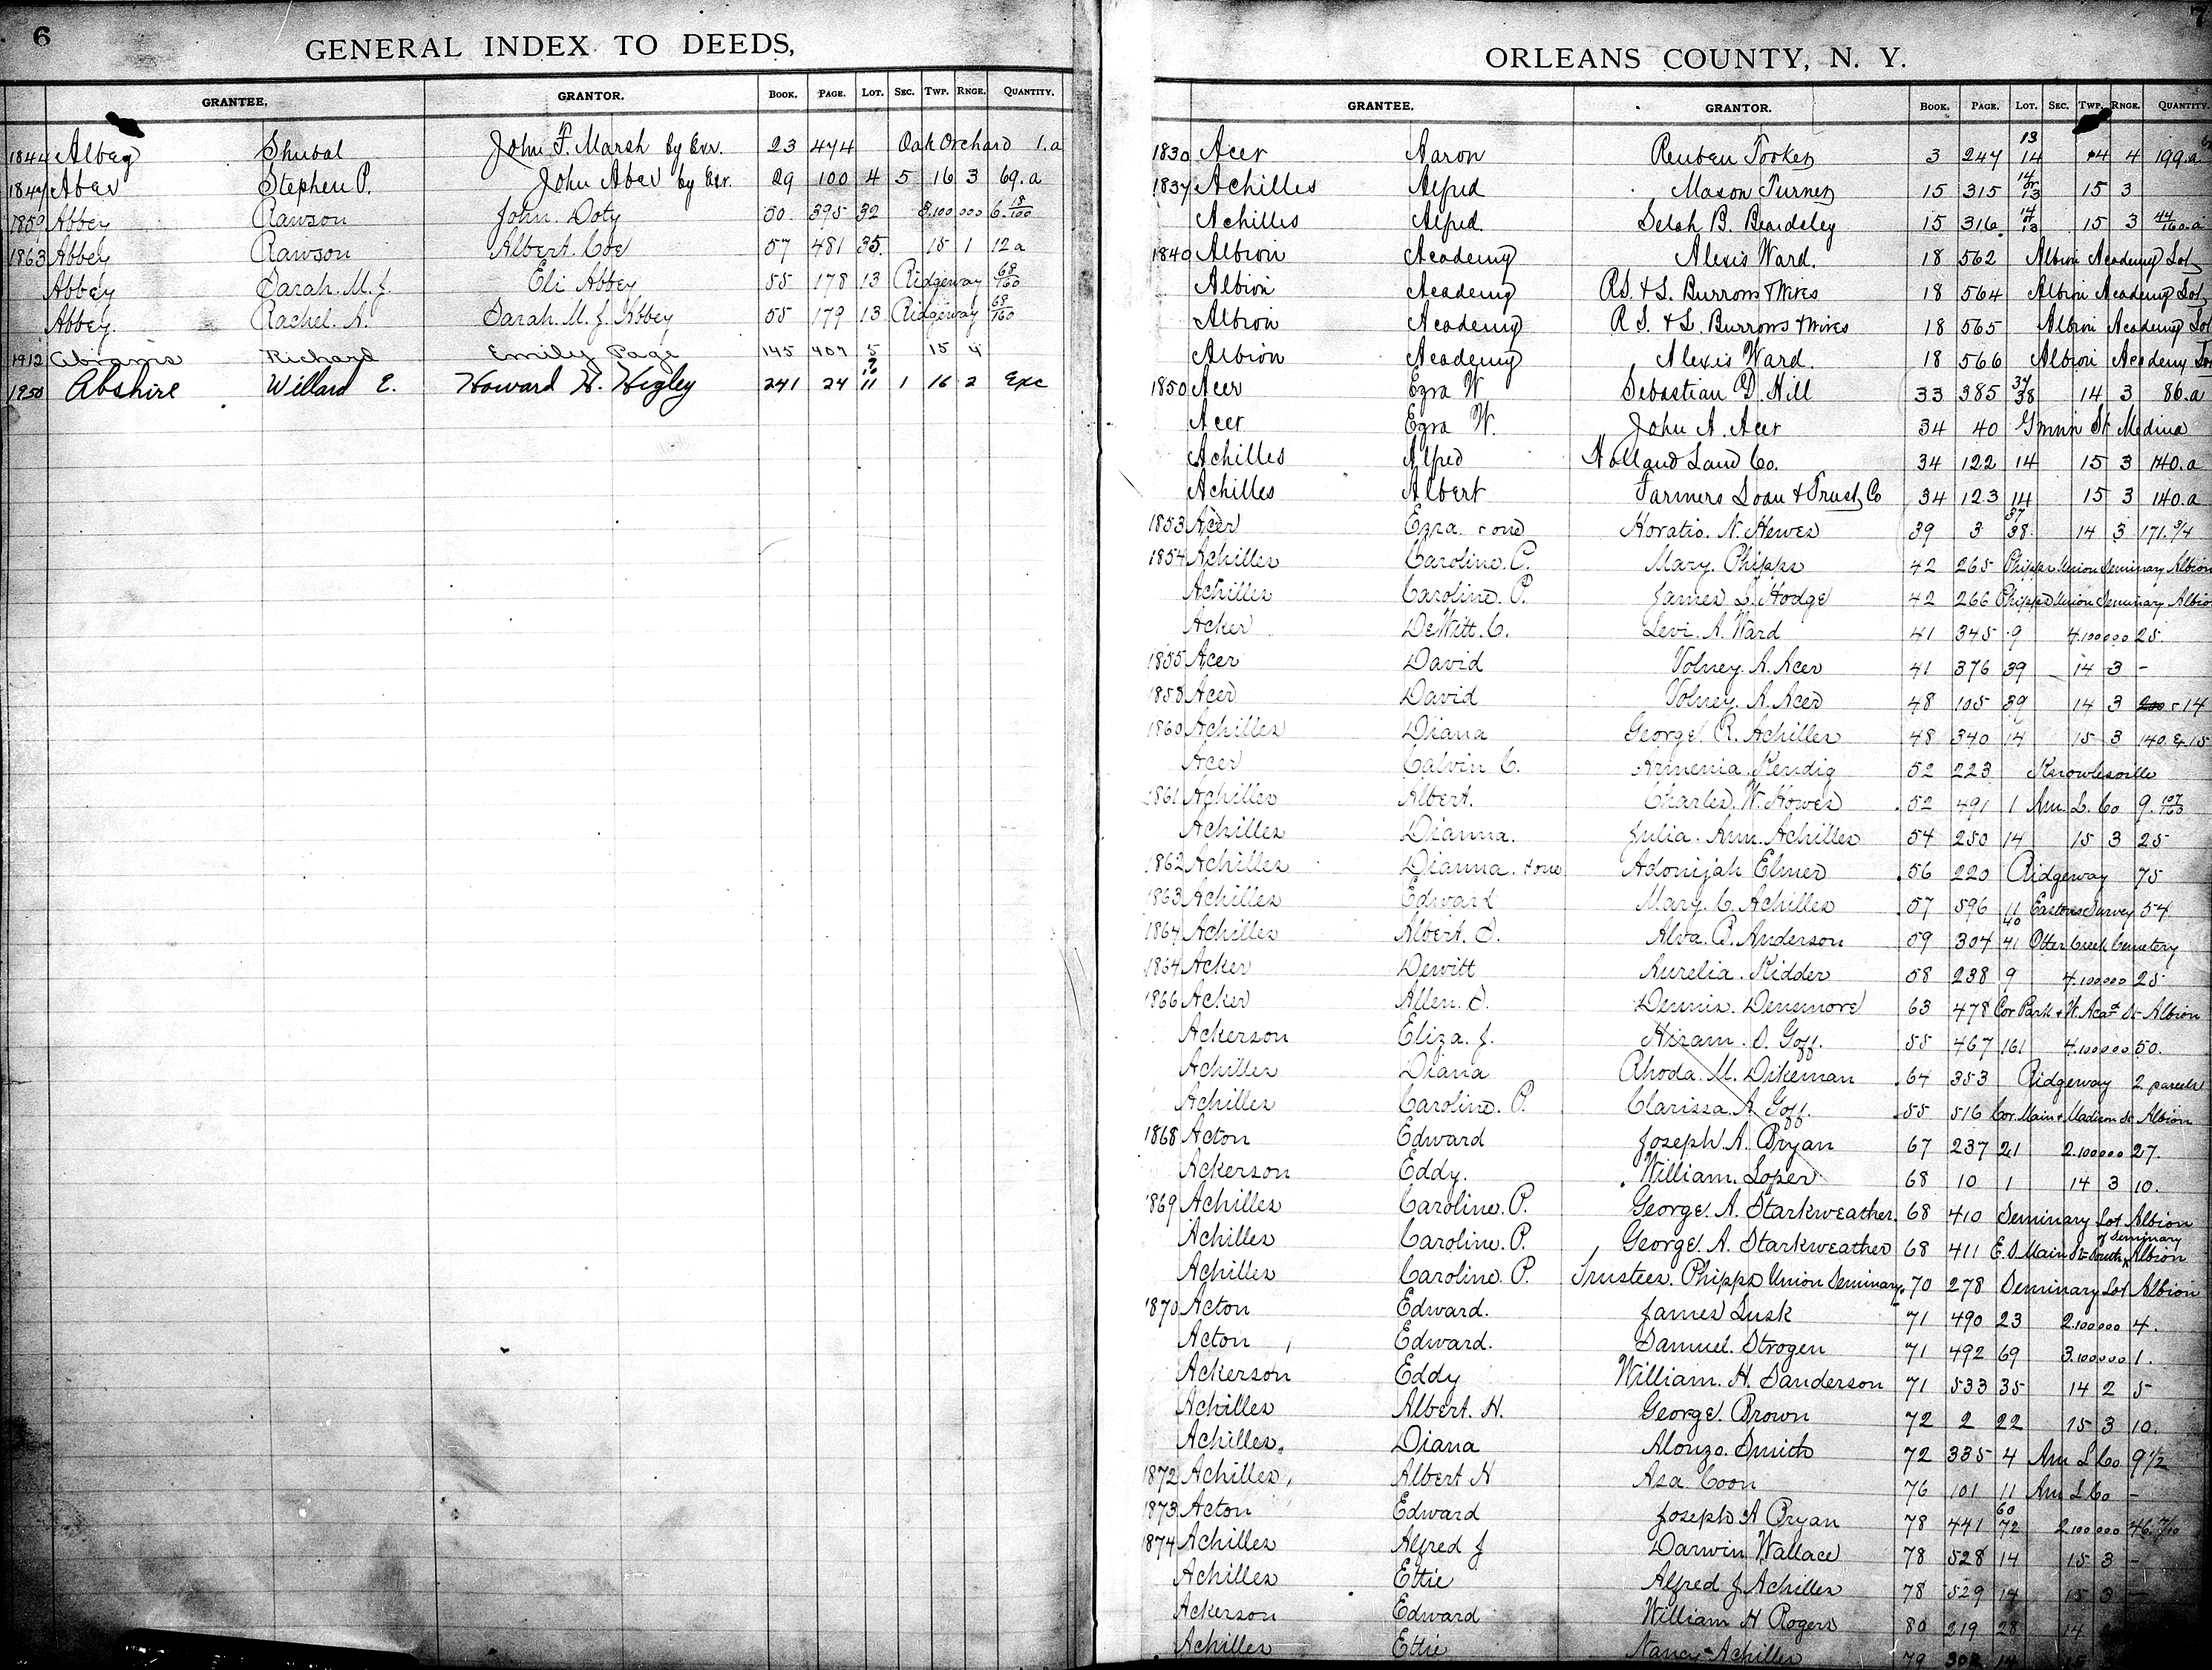 6
GENERAL INDEX TO DEEDS,
GRANTEE. GRANTOR. BOOK. PAGE. LOT. SEC. TWP. RNGE. QUANTITY.
1844 Shubal John F. Marsh by Exr. 23 474 Oak Orchard 1.a
1847 Aber Stephen P. John Aber by Exr. 29 100 4 5 16 3 69.a
1859 Abbey Rawson John Doty 50 395 32 3.100 000 6. 18/100
1863 Abbey Rawson Albert Coe 57 481 35. 15 1 12 a
Abbey Sarah. M. J. Eli Abbey 55 178 13 Ridgeway 68/160
Abbey. Rachel. A. Sarah. M. J. Abbey 55 179 13 Ridgeway 68/160
1912 Abrams Richard Emily Page 145 407 5 15 4
Abshire Willard E. Howard H. Higley 241 24 11 1 16 2 Exc
7
ORLEANS COUNTY, N. Y.
GRANTEE. GRANTOR. BOOK. PAGE. LOT. SEC. TWP. RNGE. QUANTITY.
1830 Acer Aaron Reuben 3 247 13 14 4 199.a
1837 Achilles Alfred Mason Turner 15 315 14 or 13 15 3
Achilles Alfred. Selah B. Beardsley 15 316. 14 or 13 15 3 44/160.a
1840 Albion Academy Alexis Ward. 18 562 Albion Academy Lot
Albion Academy R.S. & L. Burrows & Wives 18 564 Albion Academy Lot
Albion Academy R S. & L. Burrows & Wives 18 565 Albion Academy Lot
Albion Academy Alexis Ward. 18 566 Albion Academy Lot
1850 Acer Ezra W Sebastian D. Hill 33 385 37 38 14 3 86.a
Acer Ezra W. John A. Acer 34 40 Gwinn St Medina
Achilles Alfred Holland Land Co. 34 122 14 15 3 140.a
Achilles Albert Farmers Loan & Trust Co 34 123 14 15 3 140.a
1853 Acer Ezra. & one Horatio. N. Hewes 39 3 37 38. 14 3 171.3/4
1854 Achilles Caroline. P. Mary. Phipps 42 265 Phipps Union Seminary Albion
Achilles Caroline. P. James L. Hodge 42 266 Phipps Union Seminary Albion
Acker DeWitt. C. Levi. A. Ward 41 345 9 4.100000 25.
1855 Acer David Volney. A. Acer 41 376 39 14 3 -
1858 Acer David Volney. A. Acer 48 105 39 14 3 14
1860 Achilles Diana George. R. Achilles 48 340 14 15 3 140. & 15
Acer Calvin C. Armenia. Kendig 52 223 Knowlesville
1861 Achilles Albert. Charles. W. Howes 52 491 1 Am. L. Co 9. 107/160
Achilles Dianna. Julia. Ann. Achilles 54 250 14 15 3 25
1862 Achilles Dianna. & one Adonijah Elmer 56 220 Ridgeway 75
1863 Achilles Edward Mary. C. Achilles 57 596 11 Eastons Survey 54
1864 Achilles Albert. S. Alva. B. Anderson 59 304 40 41 Otter Creek Cemetery
1864 Acker Dewitt Aurelia. Kidder 58 238 9 4.100000 25
1866 Acker Allen. S. Dennis. Densmore 63 478 Cor Park & W. Acad St Albion
Ackerson Eliza. J. Hiram. S. Goff. 55 467 161 4.100000 50.
Achilles Diana Rhoda. M. Dikeman 64 353 Ridgeway 2 parcels
Achilles Caroline. P. Clarissa. A. Goff. 55 516 Cor. Main & Madison St. Albion
1868 Acton Edward Joseph. A. Bryan 67 237 21 2.100000 27.
Ackerson Eddy. William. Loper 68 10 1 14 3 10.
1869 Achilles Caroline. P. George. A. Starkweather. 68 410 Seminary Lot Albion
Achilles Caroline. P. George. A. Starkweather 68 411 E. S. Main St South of Seminary Albion
Achilles Caroline. P. Trustees. Phipps Union Seminary. 70 278 Seminary Lot Albion
1870 Acton Edward. James Lusk 71 490 23 2.100000 4.
Acton Edward. Samuel. Strogen 71 492 69 3.100000 1.
Ackerson Eddy William. H. Sanderson 71 533 35 14 2 5
Achilles Albert. H. George. Brown 72 2 22 15 3 10.
Achilles. Diana Alonzo. Smith 72 335 4 Am L Co 9 1/2
1872 Achilles Albert H Asa Coon 76 101 11 Am L Co -
1873 Acton Edward Joseph A Bryan 78 441 60 72 2.100000 46. 7/10
1874 Achilles Alfred J Darwin Wallace 78 528 14 15 3 -
Achilles Ettie Alfred J Achilles 78 529 14 15 3 -
Ackerson Edward William H Rogers 80 219 28 14
Achilles Ettie Nancy Achilles 79 14 15